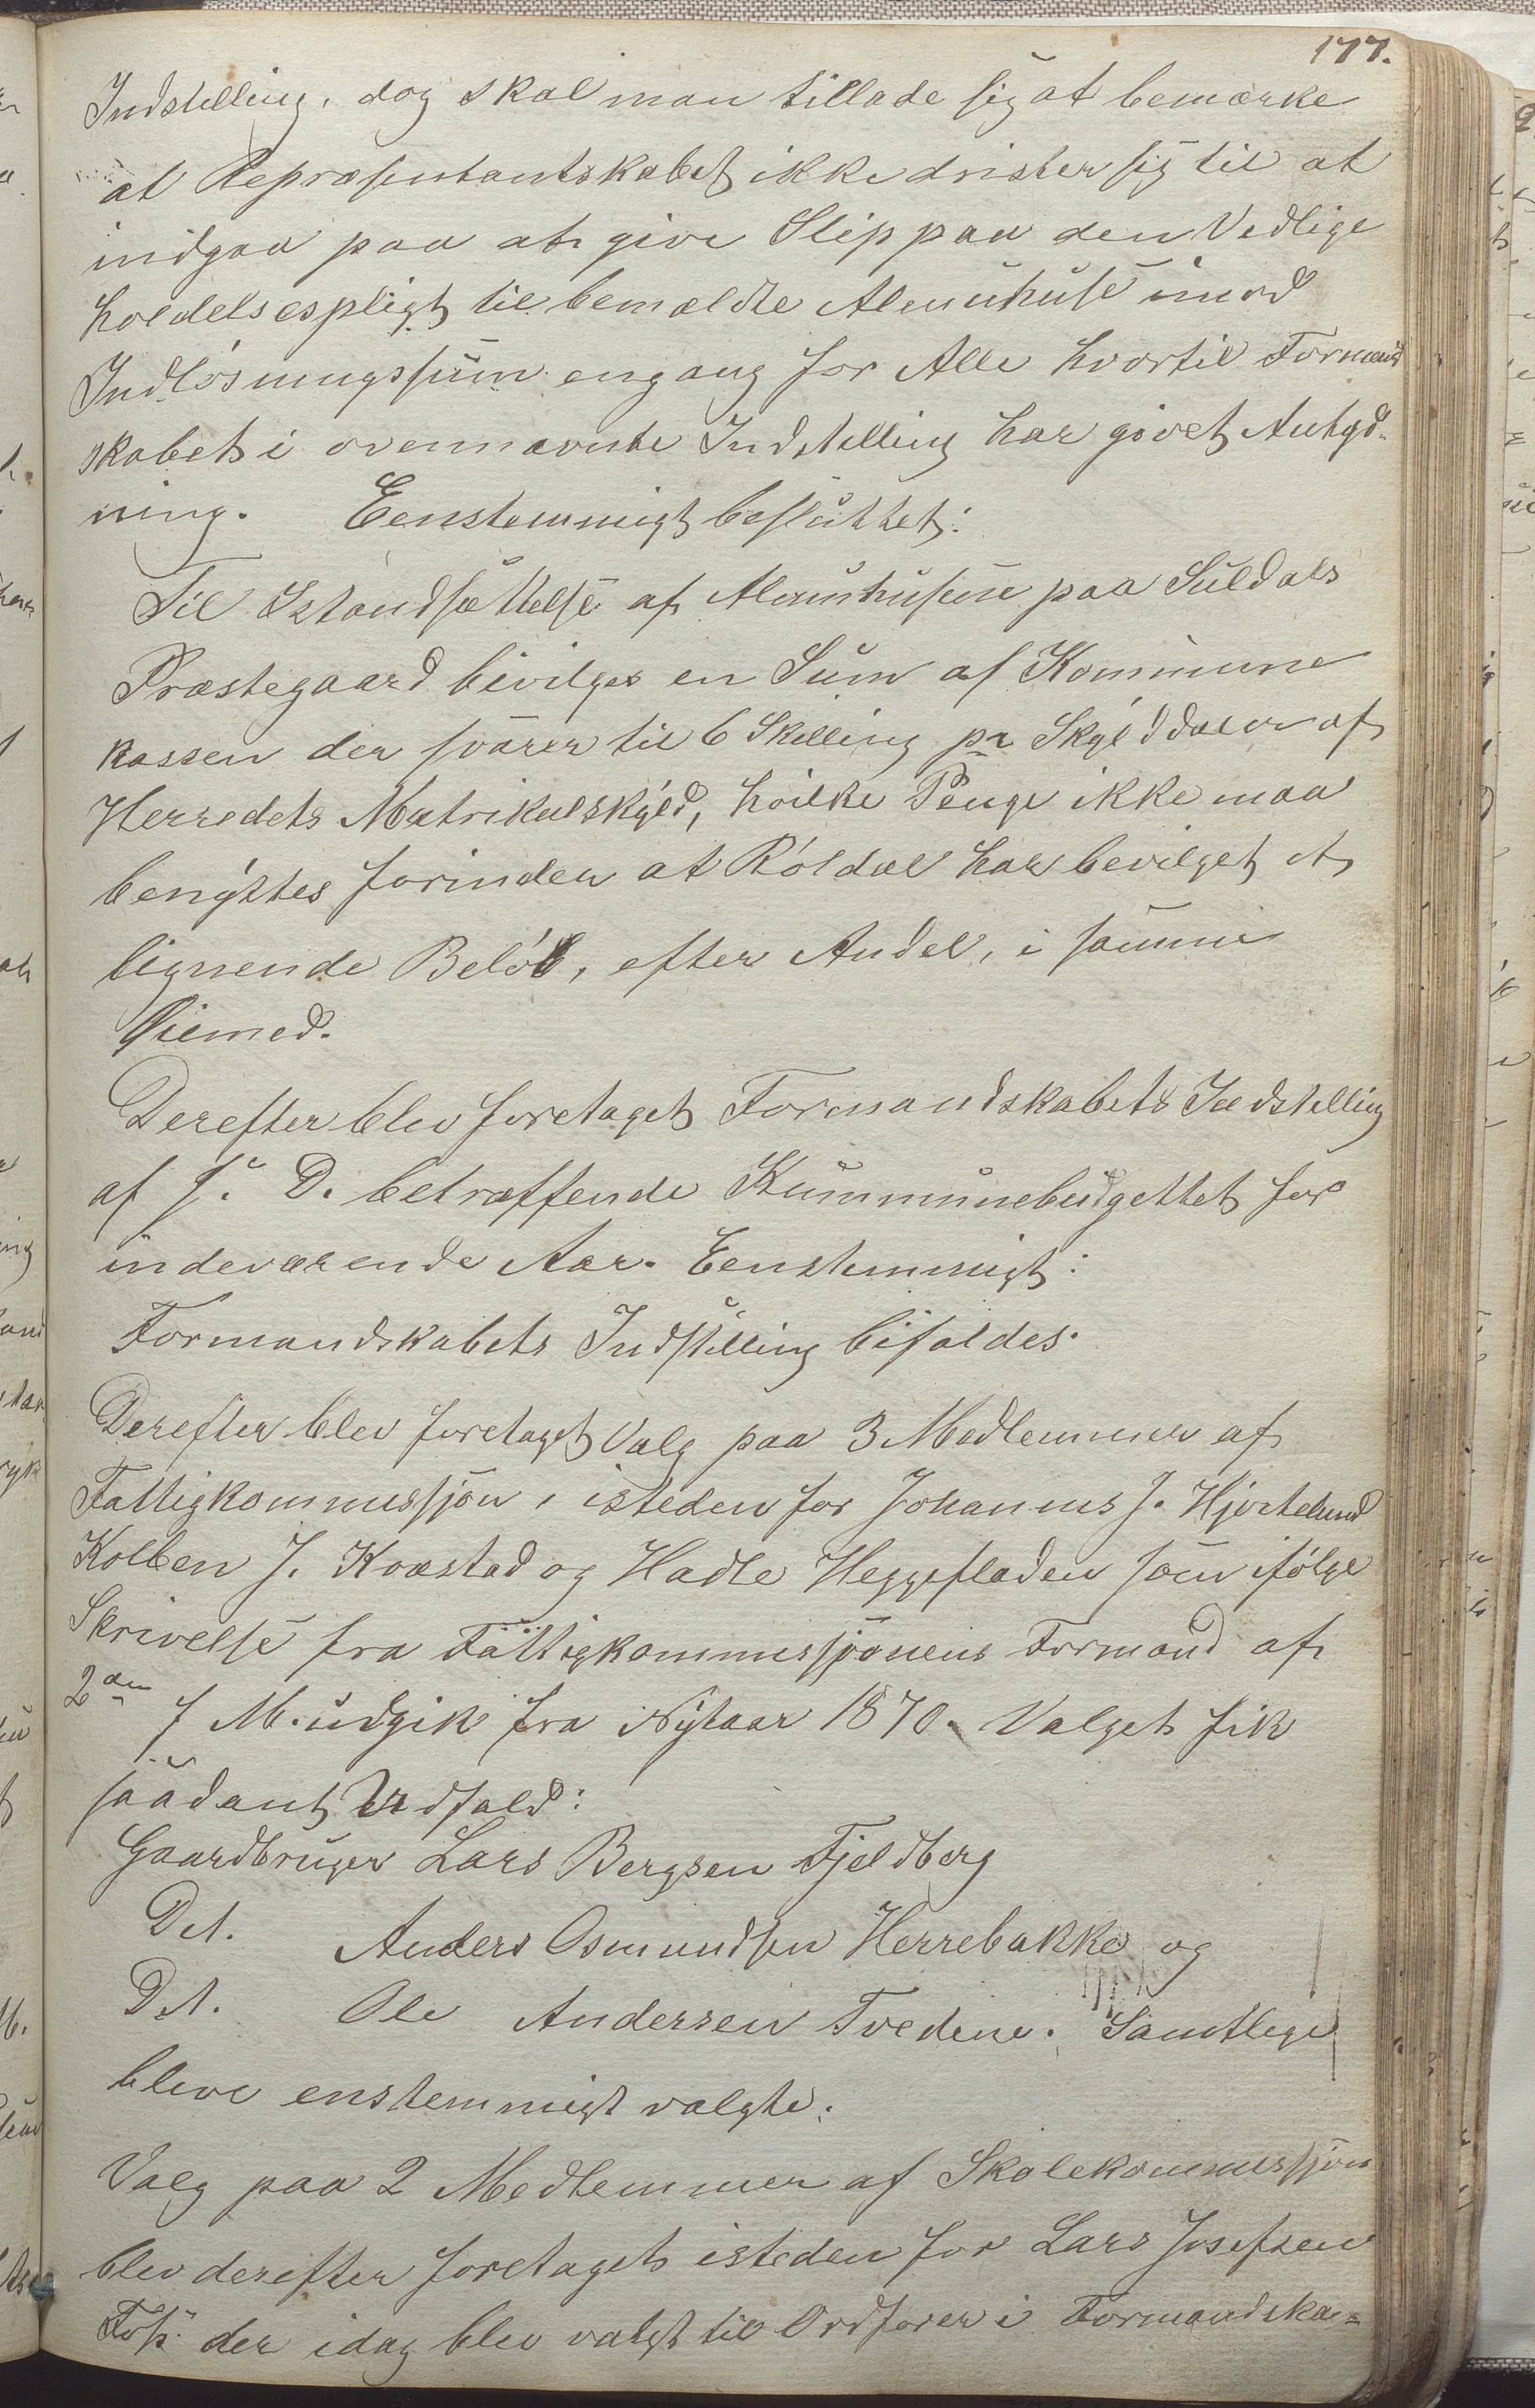 177.
Indstilling, dog skal man tillade sig at bemærke
at Repræsentantskabet ikke drister sig til at
indgaa paa at give Slip paa den Vedlige
holdelsespligt til bemældte Almuhuse imod
Indlösningssum engang for Alle hvortil Formand
skabets i ovennævnte Indstilling har givet Antyd-
ning. Eenstemmigt besluttet:
Til Istandsættelse af Almuhusene paa Suldals
Præstegaard bevilges en Sum af Kommune
kassen der svarer til 6 Skilling pr Skylddaler af
Herredets Matrikulskyld, hvilke Penge ikke maa
benyttes forinden at Röldal har bevilget et
lignende Belöb, efter Andel, i samme
Øiemed.
Derefter blev foretaget Formandskabets Indstilling
af J. D. betræffende Kummunebudgettet for
indeværende Aar. Eenstemmigt:
Formandskabets Indstilling bifaldes.
Derefter blev foretaget Valg paa 3 Medlemmer af
Fattigkommissjon, isteden for Johannes J. Hjortelund
Kolben J. Kvæstad og Hadle Heggefladen som ifölge
Skrivelse fra Fattigkommissjonens Formand af
2den f M. udgik fra Nytaar 1870. Valget fik
saadant Udfald:
Gaardbruger Lars Bergsen Fjeldberg
Dt. Anders Osmundsen Herrebakke og
Dt. Ole Andersen Tvedene. Samtlege
bleve enstemmigt valgte.
Valg paa 2 Medlemmer af Skolekommissjon
blev derefter foretaget isteden for Lars Josefsen
der idag blev valgt til Ordförer i Formandska-